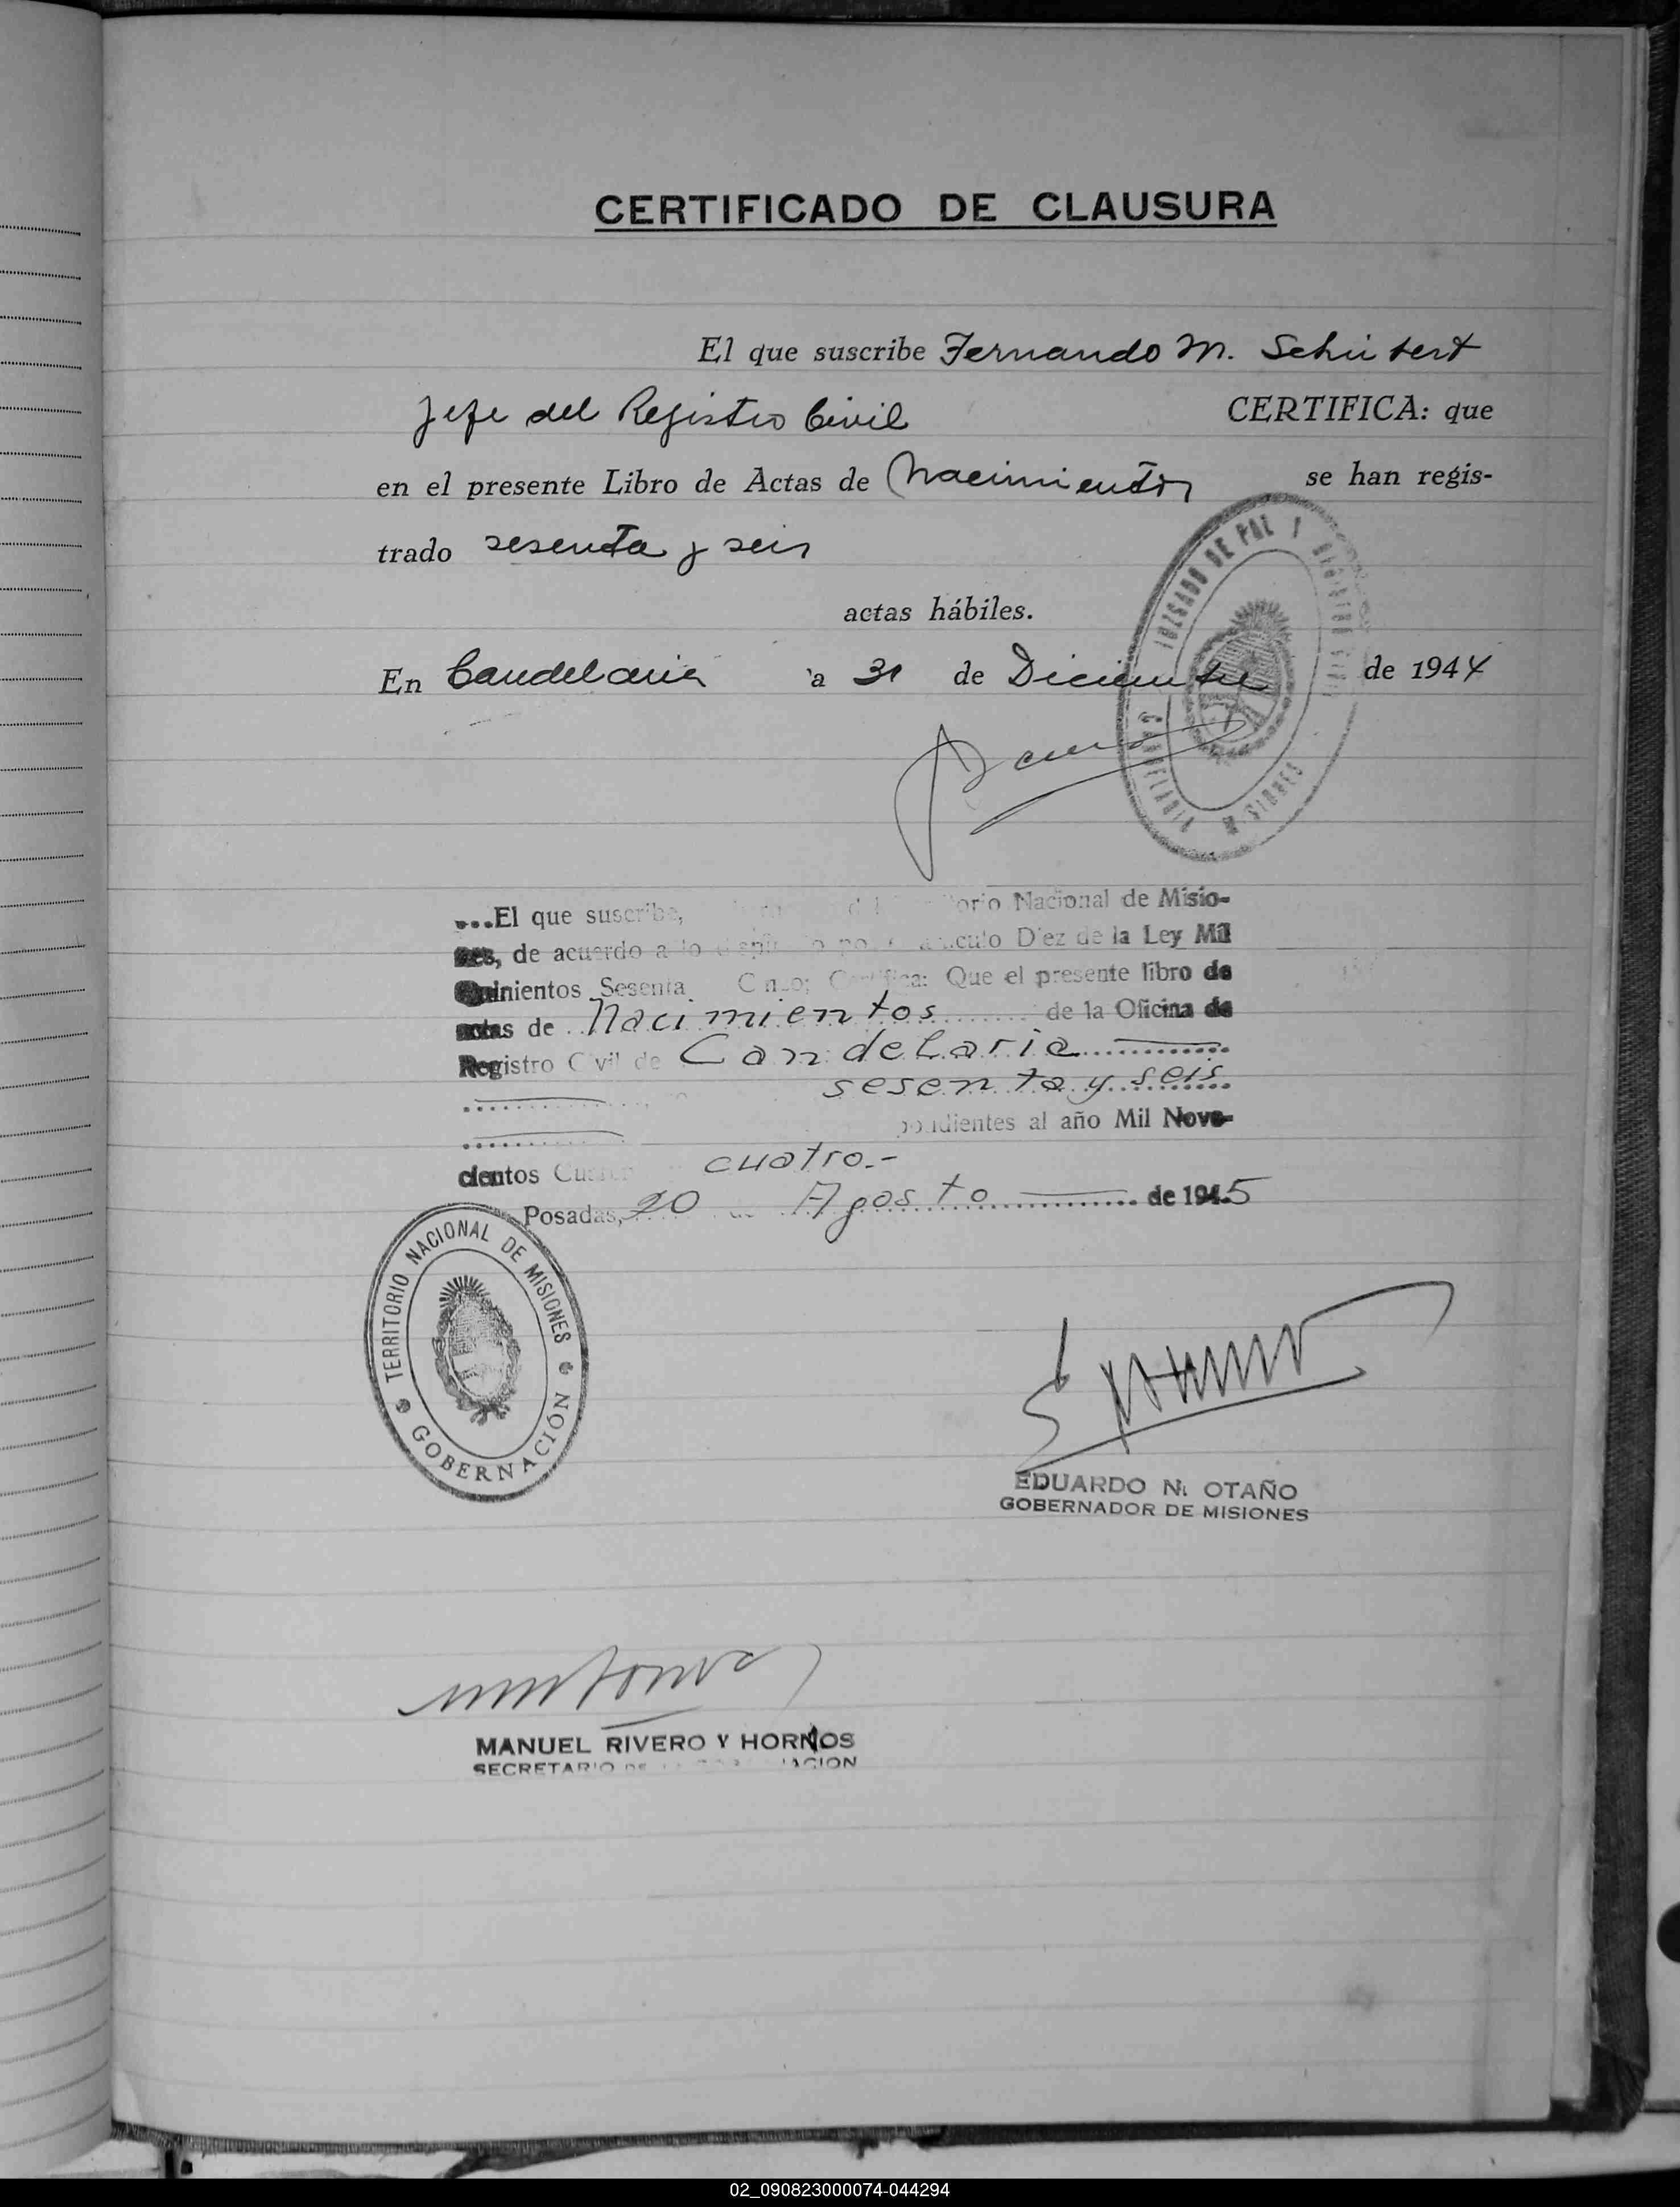 CERTIFICADO DE CLAUSURA
El que suscribe Fernando M. Schubert
Jefe del Registro Civil CERTIFICA: que
en el presente Libro de Actas de Nacimientos se han regis-
trado sesenta y seis
actas hábiles.
En Candelaria a 31 de Diciembre de 1944
JUZGADO DE PAZ Y REGISTRO CIVIL
CANDELARIA MISIONES
...El que suscribe, Nacional de Misio-
nes, de acuerdo a lo Diez de la Ley Mil
Quinientos Sesenta Cinco; Certifica: Que el presente libro de
actas de Nacimientos de la Oficina de
Registro Civil de Candelaria
sesenta y seis
pondientes al año Mil Nove-
cientos cuatro.-
Posadas, 20 de Agosto de 1945
TERRITORIO NACIONAL DE MISIONES
GOBERNACIÓN
EDUARDO N. OTAÑO
GOBERNADOR DE MISIONES
MANUEL RIVERO Y HORNOS
SECRETARIO DE LA GOBERNACION
02_090823000074-044294